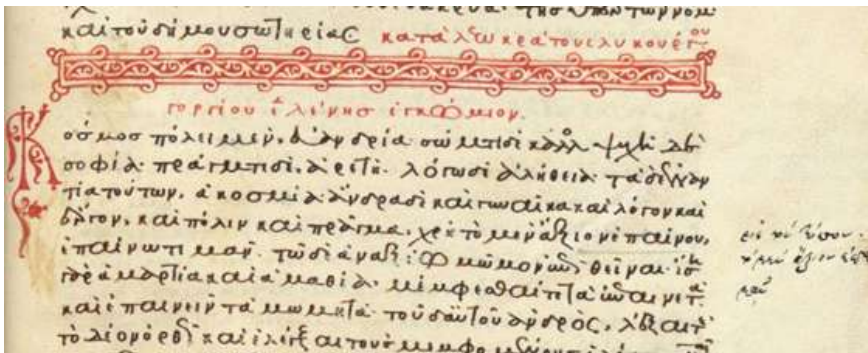 καὶ τοῦ δήμου σωτηρίας κατὰ λεωκράτους λυκούργου
γοργίου ἑλένης ἐγκώμιον.
Κόσμος πόλει μὲν, εὐανδρία· σώματι δὲ κάλλος· ψυχῇ δὲ
σοφία· πράγματι δὲ, ἀρετή· λόγω δὲ ἀλήθεια· τὰ δὲ ἐναν
τία τούτων, ἀκοσμία· ἄνδρα δὲ καὶ γυναῖκα καὶ λόγον καὶ
ἔργον, καὶ πόλιν καὶ πρᾶγμα, χρὴ τὸ μὲν ἄξιον ἐπαίνου,
ἐπαίνω τιμᾶν· τῶ δὲ ἀναξίω μῶμον ἐπιθεῖναι· ἴση
γὰρ ἁμαρτία καὶ ἀμαθία· μέμφεσθαί τε τὰ ἐπαινετὰ
καὶ ἐπαινεῖν τὰ μωμητά· τοῦ δ' αὐτοῦ ἀνδρὸς, λέξαι τε
τὸ δέον ὀρθῶς καὶ ἐλέγξαι τοὺς μεμφομένους